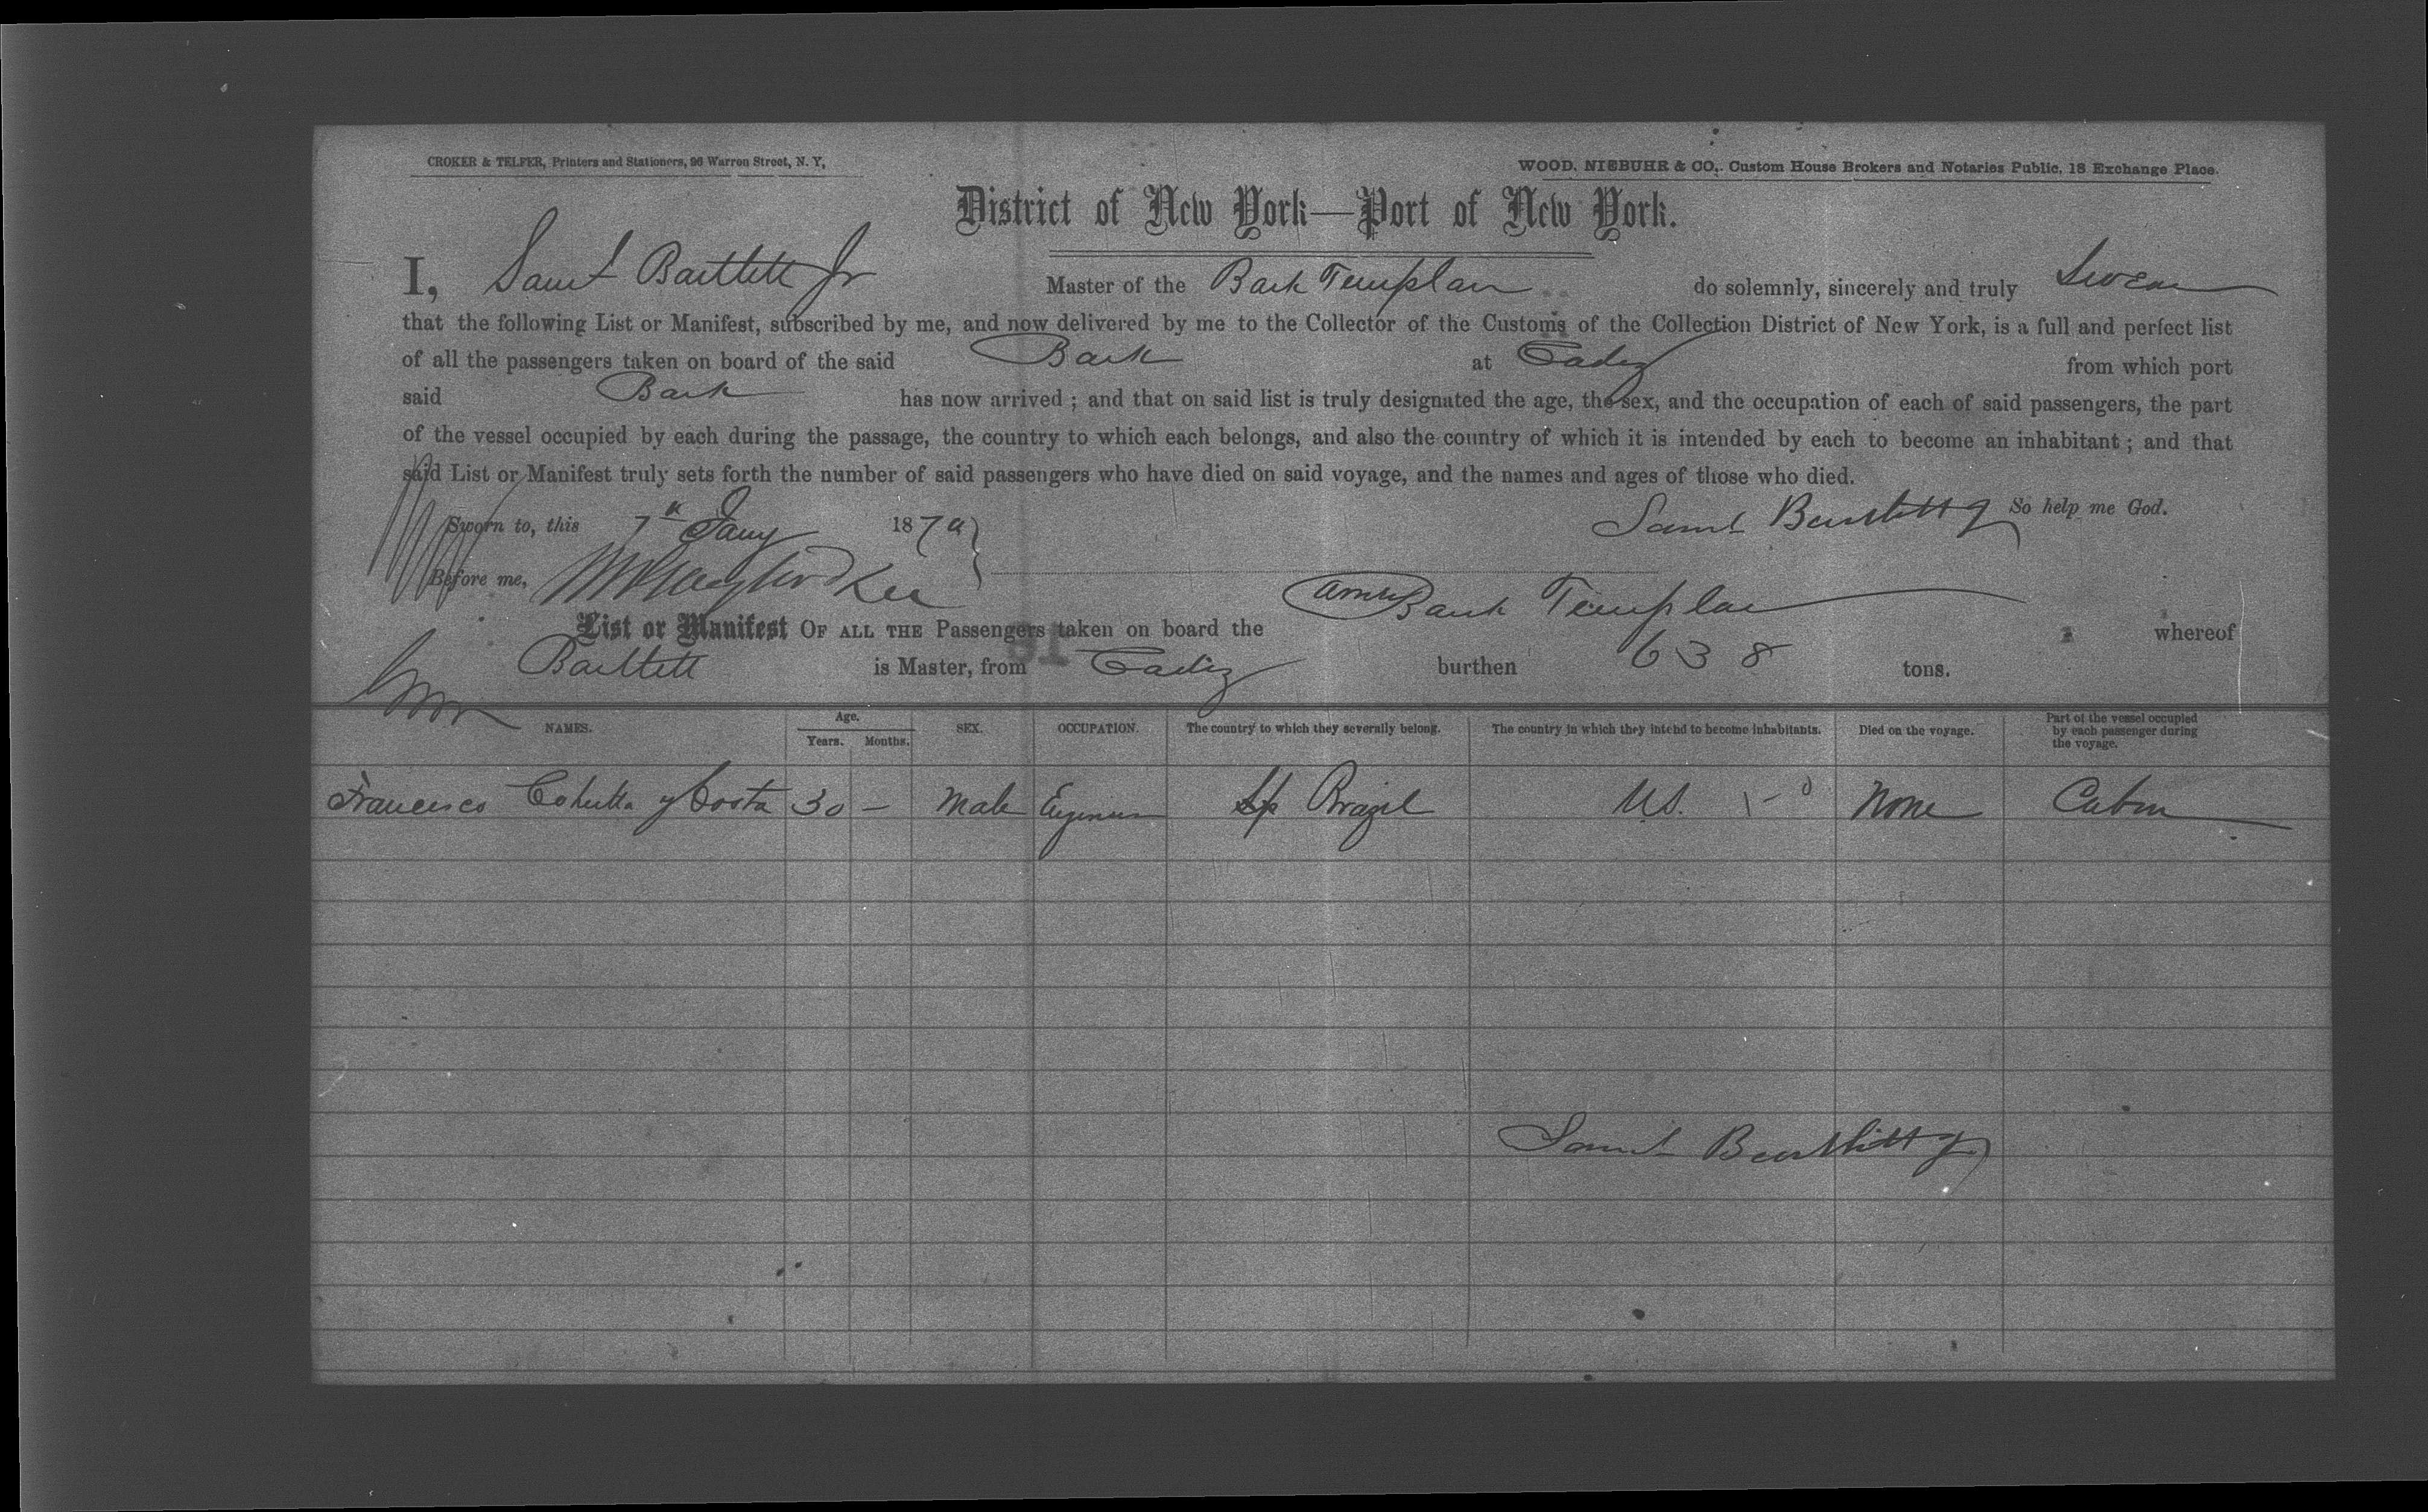 CROKER & TELFER, Printers and Stationers, 96 Warren Street, N. Y,
WOOD, NIEBUHR & CO,. Custom House Brokers and Notaries Public, 18 Exchange Place.
District of New York—Port of New York.
I, Saml Bartlett Jr Master of the Bark Templar do solemnly, sincerely and truly Swear
that the following List or Manifest, subscribed by me, and now delivered by me to the Collector of the Customs of the Collection District of New York, is a full and perfect list
of all the passengers taken on board of the said Bark at Cadiz from which port
said Bark has now arrived ; and that on said list is truly designated the age, the sex, and the occupation of each of said passengers, the part
of the vessel occupied by each during the passage, the country to which each belongs, and also the country of which it is intended by each to become an inhabitant ; and that
said List or Manifest truly sets forth the number of said passengers who have died on said voyage, and the names and ages of those who died.
So help me God.
Sworn to, this 7th Jany 1879 Saml Bartlett Jr
Before me,
List or Manifest OF ALL THE Passengers taken on board the Amer Bark Templar whereof
Bartlett is Master, from Cadiz burthen 638 tons.
91
NAMES. Age. Years. Months. SEX. OCCUPATION. The country to which they severally belong. The country in which they intend to become inhabitants. Died on the voyage. Part of the vessel occupied by each passenger during the voyage.
Francisco y Costa 30 — Male Engineer Brazil U.S. None Cabin
Saml Bartlett Jr